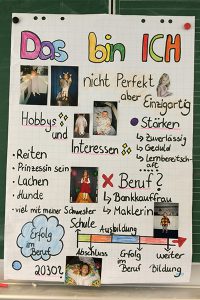 Das bin ICH
nicht Perfekt
aber Einzigartig
Hobbys
und
Interessen
Stärken
↳ Zuverlässig
↳ Geduld
↳ Lernbereitsch-
aft
• Reiten
• Prinzessin sein
• Lachen
• Hunde
• viel mit meiner Schwester
Beruf?
↳ Bankkauffrau
↳ Maklerin
Schule
Ausbildung
Erfolg
im
Beruf
2030?
Abschluss
Erfolg
im
Beruf
weiter
Bildung